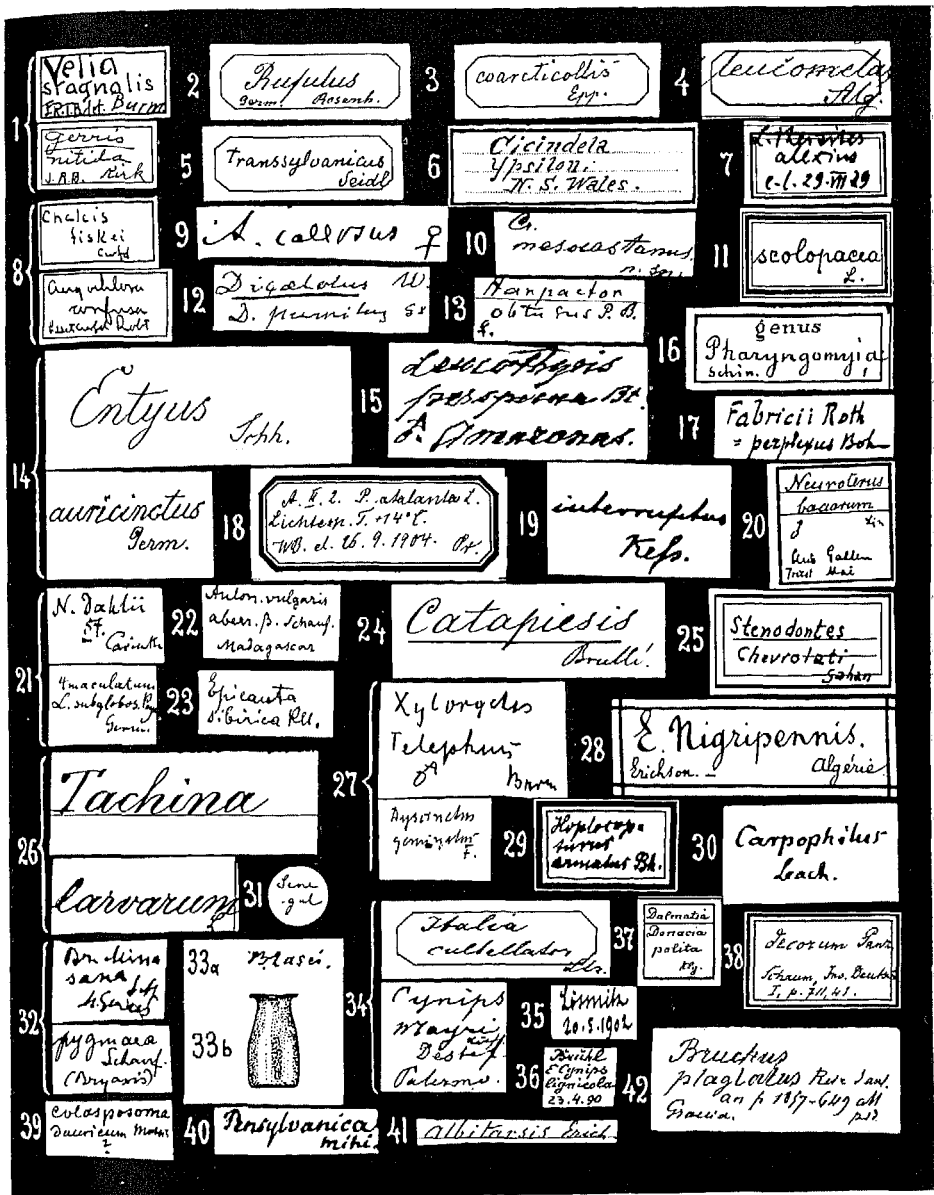 1
Velia
stagnalis
Burm
Gerris
nitida
Kirk
2
Rufulus
Germ. Rosenh.
3
coarcticollis
Epp.
4
leucomelas
5
transsylvanicus
Seidl
6
Cicindela
Ypsilon.
N. S. Wales.
7
L. thersites
alexius
e.l. 29.VII 29
8
Chalcis
fiskei
Crwfd
confusa
9
A. callosus ♀
10
11
scolopacea
L.
12
D. pumilus
13
obtusus P. B.
14
Entyus
Schh.
auricinctus
Germ.
15
Leucothyris
♂ Amazonas.
16
genus
Pharyngomyia
Schin.
17
Fabricii Roth
= perplexus Boh
18
A. II. 2. P. atalanta L.
Lichtern. T. +14°C.
el. 26. 9. 1904.
19
interruptus
Kefs.
20
Neuroterus
baccarum
♂ Lin
Aus Gallen
Triest Mai
21
N. Dahlii
St.
4maculatum
L. subglobos.
Germ.
22
Anlon. vulgaris
aberr. β. Schauf.
Madagascar
23
Epicauta
sibirica
24
Catapiesis
Brullé.
25
Stenodontes
Chevrolati
Gahan
26
Tachina
larvarum
L
27
Telephus
♂ Burm
geminatus
F.
28
E. Nigripennis.
Erichson. Algérie.
29
Hoplocope-
turus
armatus Bh.
30
Carpophilus
Leach.
31
Sene
-gal
32
pygmaea
Schauf.
(Bryaxis)
33a
Blasei.
33b
34
Italia
cultellator
Cynips
Mayri
Destef.
Palermo.
35
20.5.1902
36
Brühl
Cynips
lignicola
23.4.90
37
Dalmatia
Donacia
polita
38
decorum Panz
Schaum, Ins. Deutsc
I, p. 711, 41.
39
Colasposoma
Dauricum
40
Pensylvanica
mihi.
41
albitarsis Erich.
42
Bruchus
plagiatus
Graecia.